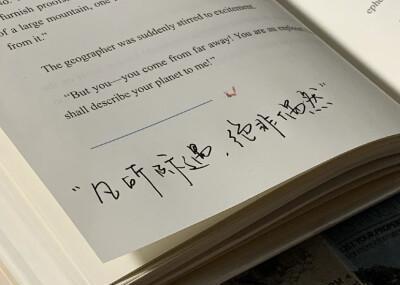 furnish proofs,
of a large mountain, one
from it.”
The geographer was suddenly stirred to excitement.
“But you—you come from far away! You are an
shall describe your planet to me!”
“凡所际遇，绝非偶然”